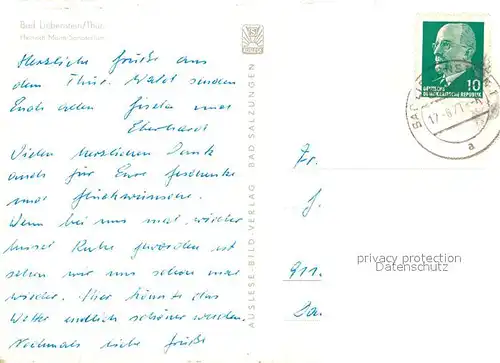 Bad Liebenstein/Thür.
Heinrich Mann-Sanatorium
Herzliche Grüße aus
dem Thür. Wald senden
Euch allen Gisela und
Eberhardt
Vielen herzlichen Dank
auch für Eure Geschenke
und Glückwünsche.
Wenn bei uns mal wieder
Ruhe geworden ist
sehen wir uns schon mal
wieder. Hier könnte das
Wetter endlich schöner werden.
Nochmals liebe Grüße
AUSLESE-BILD-VERLAG BAD SALZUNGEN
10
DEUTSCHE
DEMOKRATISCHE REPUBLIK
a
Fr.
J.
911
Da.
privacy protection
Datenschutz